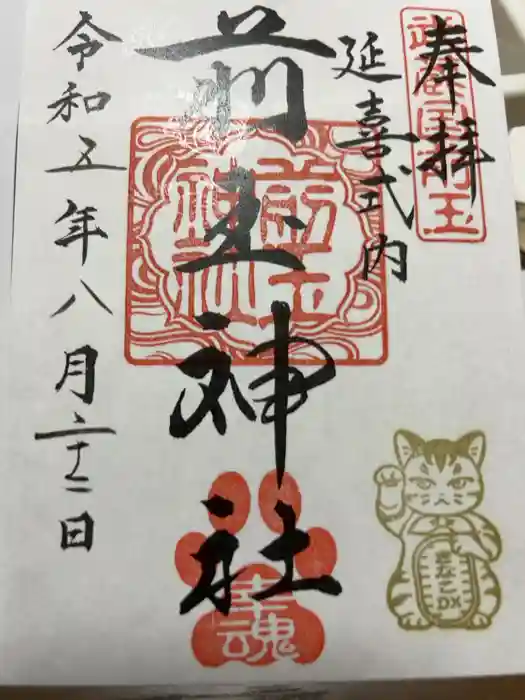 奉拝
武蔵国前玉
延喜式内
前玉神社
前玉神社
幸魂
令和五年八月二十二日
きなこDX